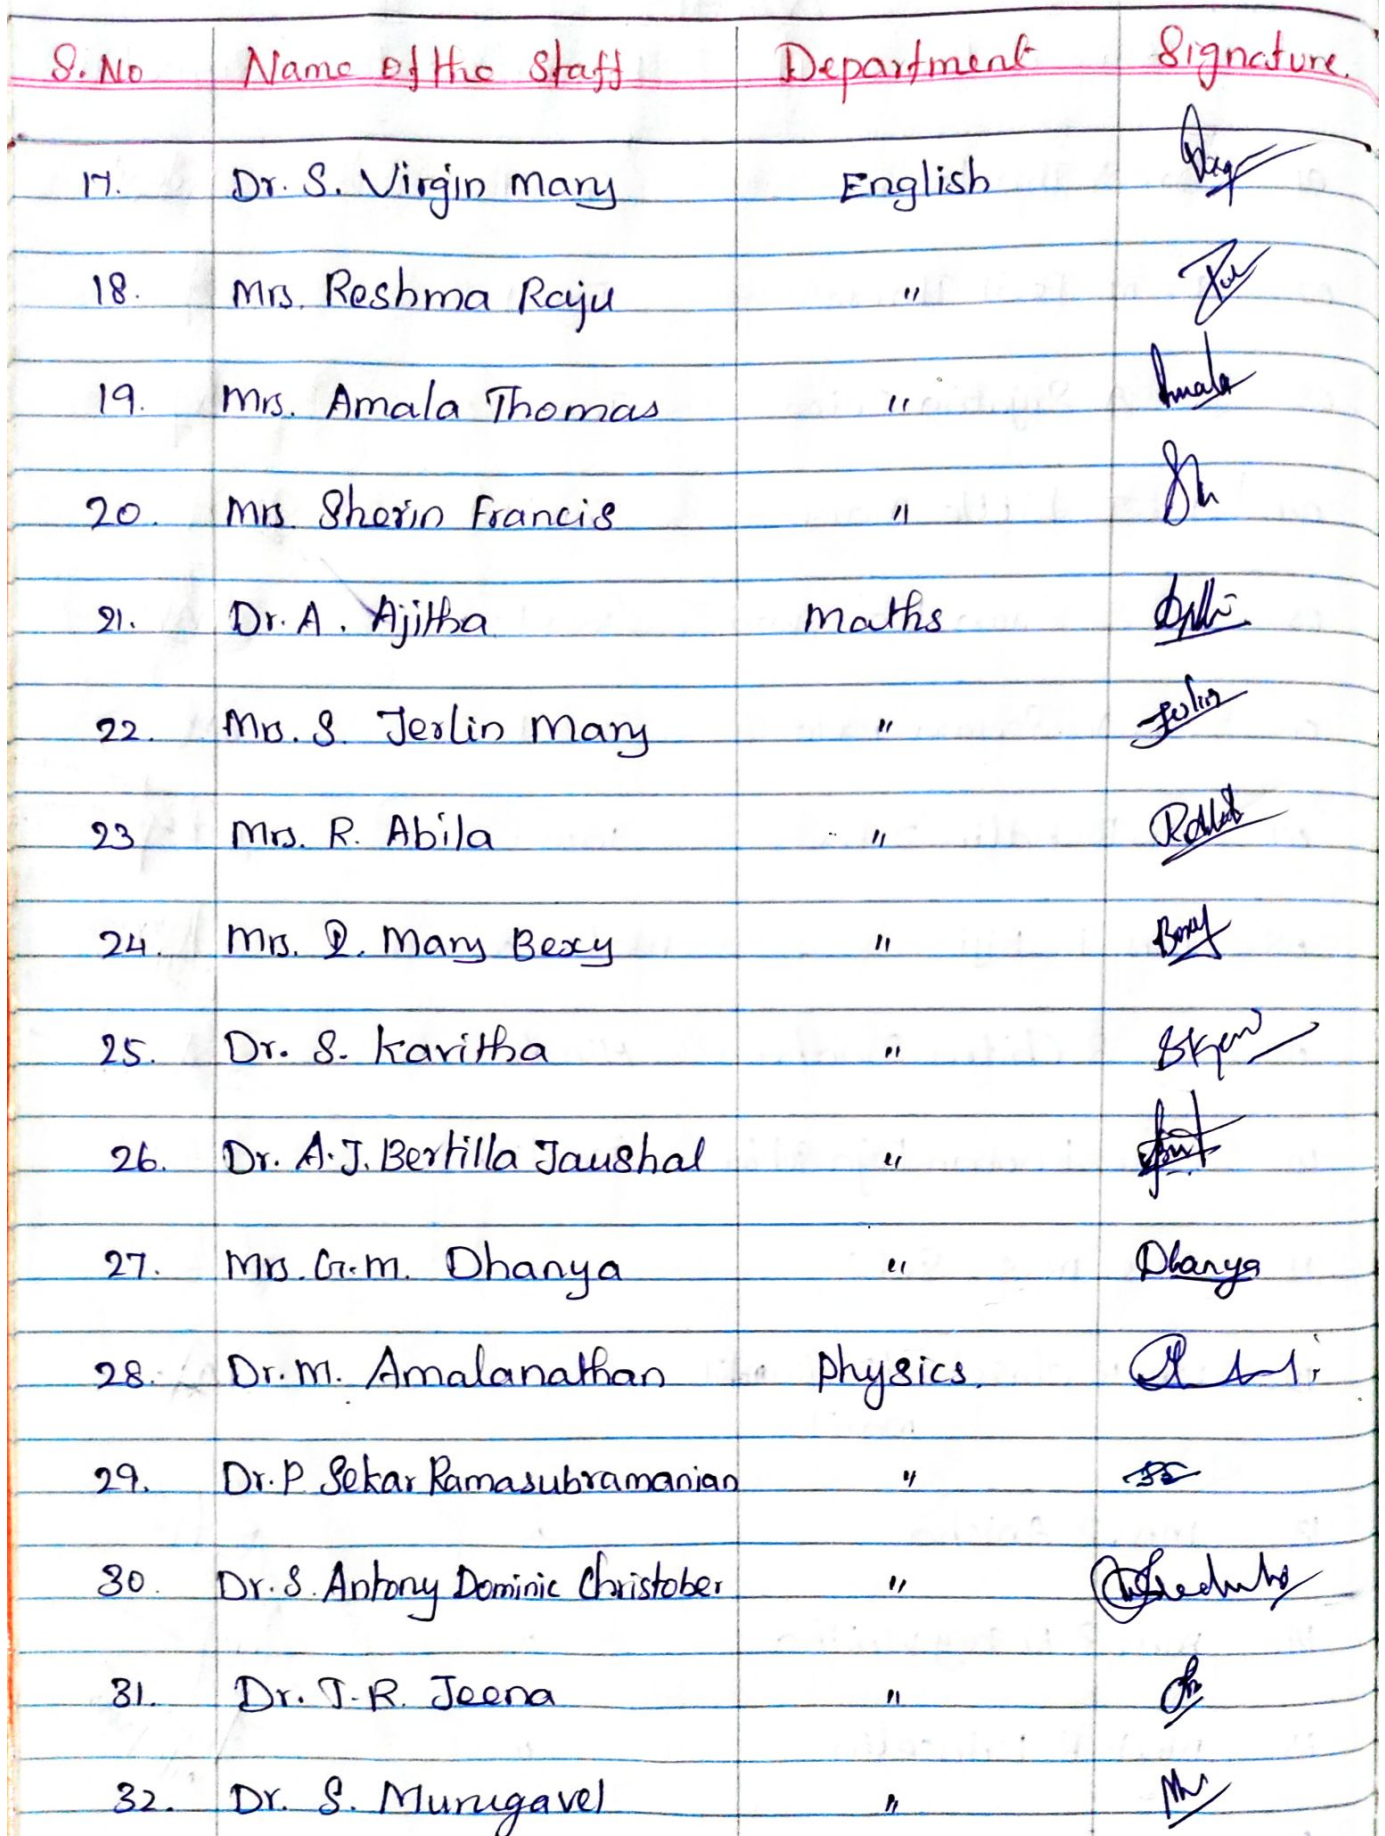 S. No Name of the Staff Department Signature.
17. Dr. S. Virgin Mary English
18. Mrs. Reshma Raju "
19. Mrs. Amala Thomas " Amala
20. Mrs. Sherin Francis "
21. Dr. A. Ajitha Maths
22. Mrs. S. Jerlin Mary "
23 Mrs. R. Abila "
24. Mrs. Mary Bexy " Bexy
25. Dr. S. Kavitha "
26. Dr. A.J. Bertilla Jaushal "
27. Mrs. G.M. Dhanya " Dhanya
28. Dr. M. Amalanathan Physics.
29. Dr. P Sekar Ramasubramanian "
30. Dr. S. Antony Dominic Christober "
31. Dr. J.R. Jeena "
32. Dr. S. Murugavel "